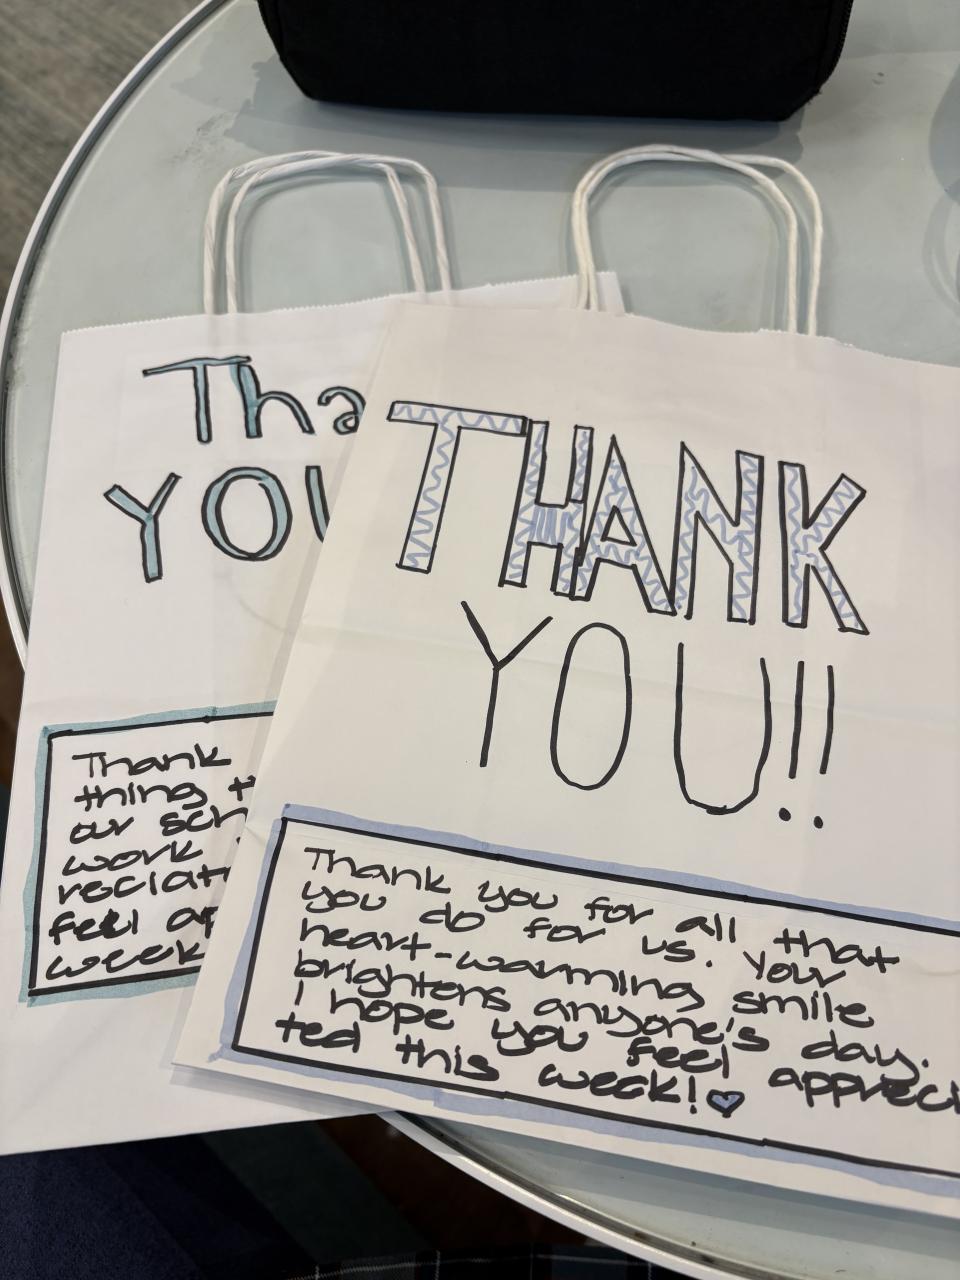 Tha
YOU
Thank
thing t
our sch
work
reciat
feel ap
week
THANK
YOU!!
Thank you for all that
you do for us. Your
heart-warming smile
brightens anyone's day.
I hope you feel appreci
ted this week!♡